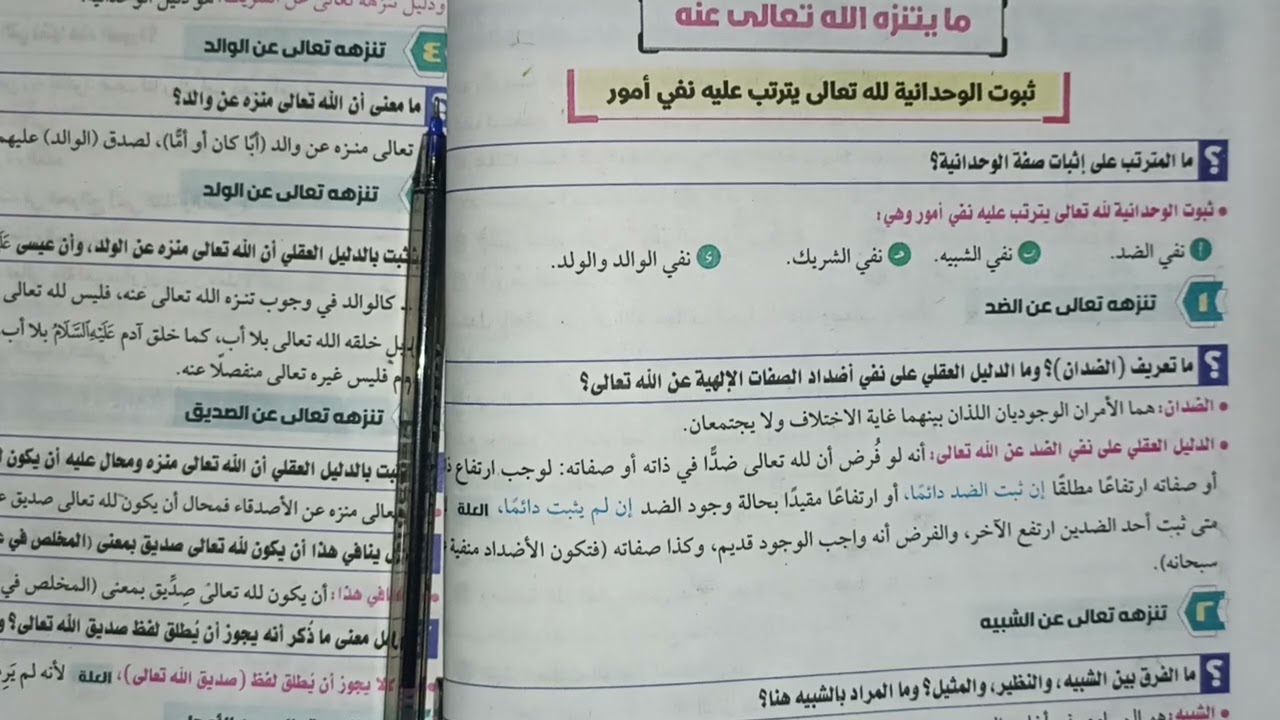 ما يتنزه الله تعالى عنه
ثبوت الوحدانية لله تعالى يترتب عليه نفي أمور
؟ ما المترتب على إثبات صفة الوحدانية؟
• ثبوت الوحدانية لله تعالى يترتب عليه نفي أمور وهي:
أ نفي الضد. ب نفي الشبيه. جـ نفي الشريك. د نفي الوالد والولد.
١ تنزهه تعالى عن الضد
؟ ما تعريف (الضدان)؟ وما الدليل العقلي على نفي أضداد الصفات الإلهية عن الله تعالى؟
• الضدان: هما الأمران الوجوديان اللذان بينهما غاية الاختلاف ولا يجتمعان.
• الدليل العقلي على نفي الضد عن الله تعالى: أنه لو فُرض أن لله تعالى ضدًّا في ذاته أو صفاته: لوجب ارتفاع
أو صفاته ارتفاعًا مطلقًا إن ثبت الضد دائمًا، أو ارتفاعًا مقيدًا بحالة وجود الضد إن لم يثبت دائمًا، العلة
متى ثبت أحد الضدين ارتفع الآخر، والفرض أنه واجب الوجود قديم، وكذا صفاته (فتكون الأضداد منفية
سبحانه).
٢ تنزهه تعالى عن الشبيه
؟ ما الفرق بين الشبيه، والنظير، والمثيل؟ وما المراد بالشبيه هنا؟
• الشبيه: هو
٤ تنزهه تعالى عن الوالد
ما معنى أن الله تعالى منزه عن والد؟
تعالى منزه عن والد (أبًا كان أو أمًّا)، لصدق (الوالد) عليهم
تنزهه تعالى عن الولد
بالدليل العقلي أن الله تعالى منزه عن الولد، وأن عيسى
كالوالد في وجوب تنزه الله تعالى عنه، فليس لله تعالى
خلقه الله تعالى بلا أب، كما خلق آدم عَلَيْهِ السَّلَامُ بلا أب
فليس غيره تعالى منفصلًا عنه.
تنزهه تعالى عن الصديق
بالدليل العقلي أن الله تعالى منزه ومحال عليه أن يكون
تعالى منزه عن الأصدقاء فمحال أن يكون لله تعالى صديق
ينافي هذا أن يكون لله تعالى صديق بمعنى (المخلص في
هذا: أن يكون لله تعالى صِدِّيق بمعنى (المخلص في
معنى ما ذُكر أنه يجوز أن يُطلق لفظ صديق الله تعالى؟
لا يجوز أن يُطلق لفظ (صديق الله تعالى)، العلة لأنه لم